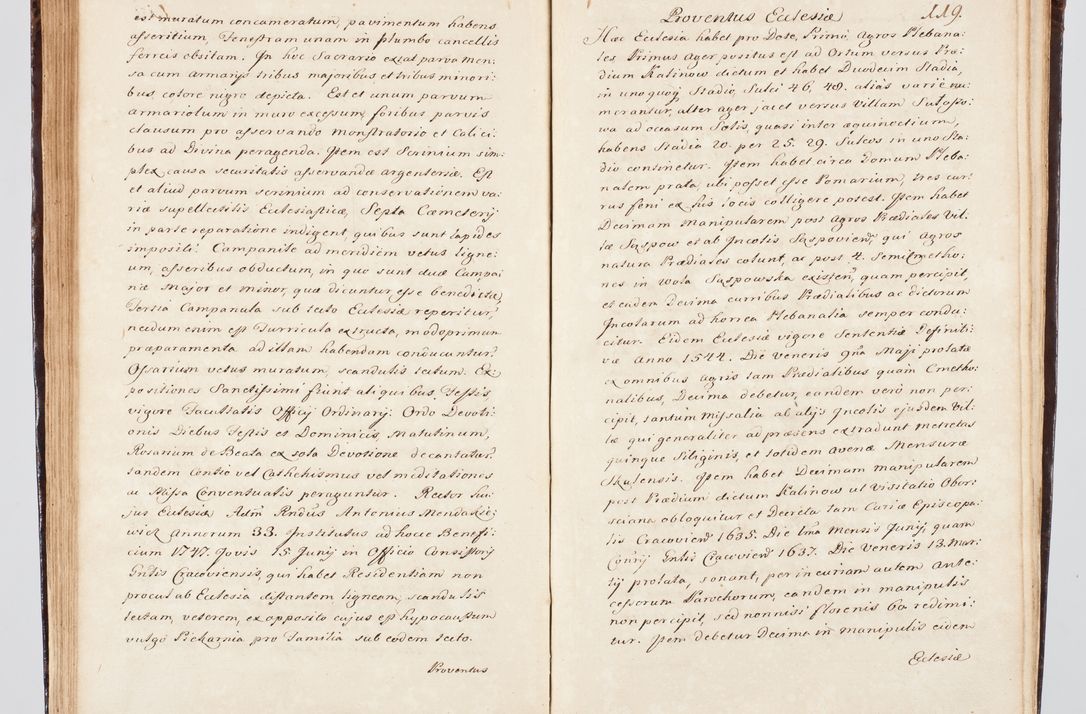 est muratum concameratum, pavimentum habens
asseritium, Fenestram unam in plumbo cancellis
ferreis obsitam. In hoc Sacrario extat parva Men:
sa cum armarijs tribus majoribus et tribus minori:
bus, colore nigro depicta. Est et unum parvum
armariolum in muro excessum, foribus parvis
clausum pro asservando monstratorio et Calici:
bus ad Divina peragenda. Item est Scrinium sim:
plex causa securitatis asservandæ argenteriæ. Est
et aliud parvum scrinium ad conservationem va:
riæ supellectilis Ecclesiasticæ, Septa Cœmeterij
in parte reparatione indigent, quibus sunt lapides
impositi. Campanile ad meridiem vetus ligne:
um, asseribus obductum, in quo sunt duæ Campa:
næ Major et minor, quæ dicuntur esse benedictæ,
Tertia Campanula sub tecto Ecclesiæ reperitur,
necdum enim est Turricula extructa, modo primum
præparamenta ad illam habendam conducuntur.
Ossarium vetus muratum, scandulis tectum. Ex:
positiones Sanctissimi fiunt aliquibus Festis,
vigore Facultatis Officij Ordinarij. Ordo Devoti:
onis Diebus Festis et Dominicis, Matutinum,
Rosarium de Beata ex sola Devotione decantatur,
tandem Contio vel Cathechismus vel meditationes
ac Missa Conventualis peraguntur. Rector hu:
jus Ecclesiæ Adm Rndus Antonius Mendakie:
wicz Annorum 33. Institutus ad hocce Benefi:
cium 1747. Jovis 15 Junij in Officio Consistorij
Gntis Cracoviensis, qui habet Residentiam non
procul ab Ecclesia distantem ligneam, scandulis
tectam, veterem, ex opposito cujus est hypocaustum
vulgo Piekarnia pro Familia sub eodem tecto.
Proventus
119.
Proventus Eclesiæ
Hæc Ecclesia habet pro Dote, Primo, agros Plebana:
les Primus ager positus est ad Ortum versus Præ:
dium Kalinow dictum et habet Duodecim Stadia,
in uno quoq Stadio, Sulci 46, 48. alias variè nu:
merantur, alter ager jacet versus Villam Sułosso:
wa ad occasum Solis, quasi inter æquinoctium,
habens Stadia 20. per 25. 29. Sulcos in uno Sta:
dio continetur. Item habet circa Domum Pleba:
nalem prata, ubi posset esse Pomarium, tres cur:
rus feni ex his locis colligere potest. Item habet
Decimam manipularem post agros Prædiales Vil:
læ Sąspow et ab Incolis Sąspovien, qui agros
natura Prædiales colunt, ac post 4. Semitmetho:
nes in Wola Sąspowska existen, quam percipit,
et eadem Decima curribus Prædialibus ac dictorum
Incolarum ad horrea Plebanalia semper condu:
citur. Eidem Ecclesiæ vigore Sententiæ Definiti:
væ Anno 1544. Die Veneris 9na Maji prolatæ
ex omnibus agris tam Prædialibus quàm Cmetho:
nalibus, Decima debetur, eandem verò non per:
cipit, tantum missalia ab alijs Incolis ejusdem Vil:
læ qui generaliter ad præsens extradunt metretas
quinque Siliginis, et totidem avenæ Mensuræ
Skalensis. Item habet Decimam manipularem
post Prædium dictum Kalinow ut Visitatio Obor:
sciana obloquitur et Decreta tam Curiæ Episcopa:
lis Cracovien 1635. Die Ima Mensis Junij, quam
Conrij Gntis Cracovien 1637. Die Veneris 13. Mar:
tij prolata, sonant, per incuriam autem Ante:
cessorum Parochorum, eandem in manipulis
non percipit, sed nonnisi florenis 60 redimi:
tur. Item debetur Decima in manipulis eidem
Eclesiæ